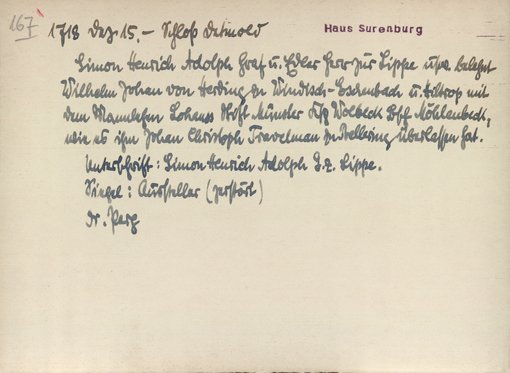 167
1718 Dez. 15. – Schloß Detmold
Haus Surenburg
Simon Henrich Adolph Graf u. Edler Herr zur Lippe usw. belehnt
Wilhelm Johan von Herding zu Windisch-Eschenbach u. Holtrop mit
dem Mannlehen Lohaus Stift Münster Kspl Wolbeck Bsft Möhlenbeck,
wie es ihm Johan Christoph Travelman zu überlassen hat.
Unterschrift: Simon Henrich Adolph G. z. Lippe.
Siegel: Aussteller (zerstört)
Or. Perg